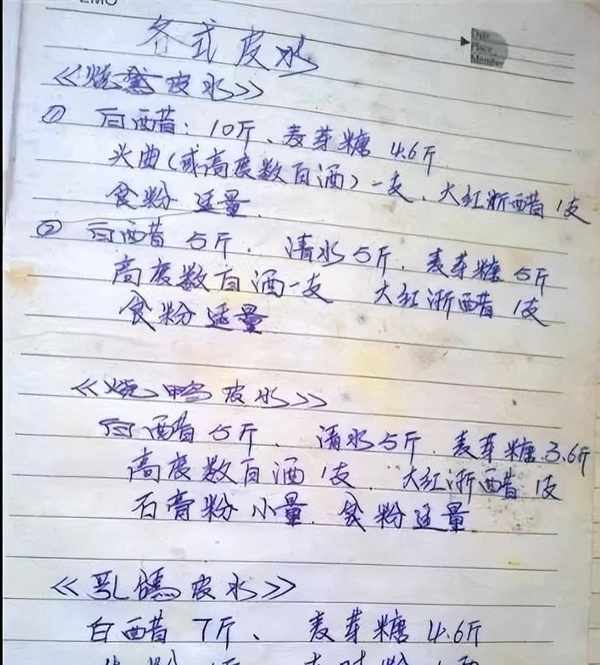 EMO
Date
Place
Member
各式皮水
《烧鹅皮水》
① 白醋：10斤、麦芽糖 4.6斤
头曲（或高度数白酒）一支、大红浙醋 1支
食粉 适量
② 白西昔 5斤、清水5斤、麦芽糖 5斤
高度数白酒一支 大红浙醋 1支
食粉适量
《烧鸭皮水》
白醋5斤、清水5斤、麦芽糖3.6斤
高度数白酒1支、大红浙醋 1支
石膏粉小量、食粉适量
《乳鸽皮水》
白醋7斤、麦芽糖4.6斤